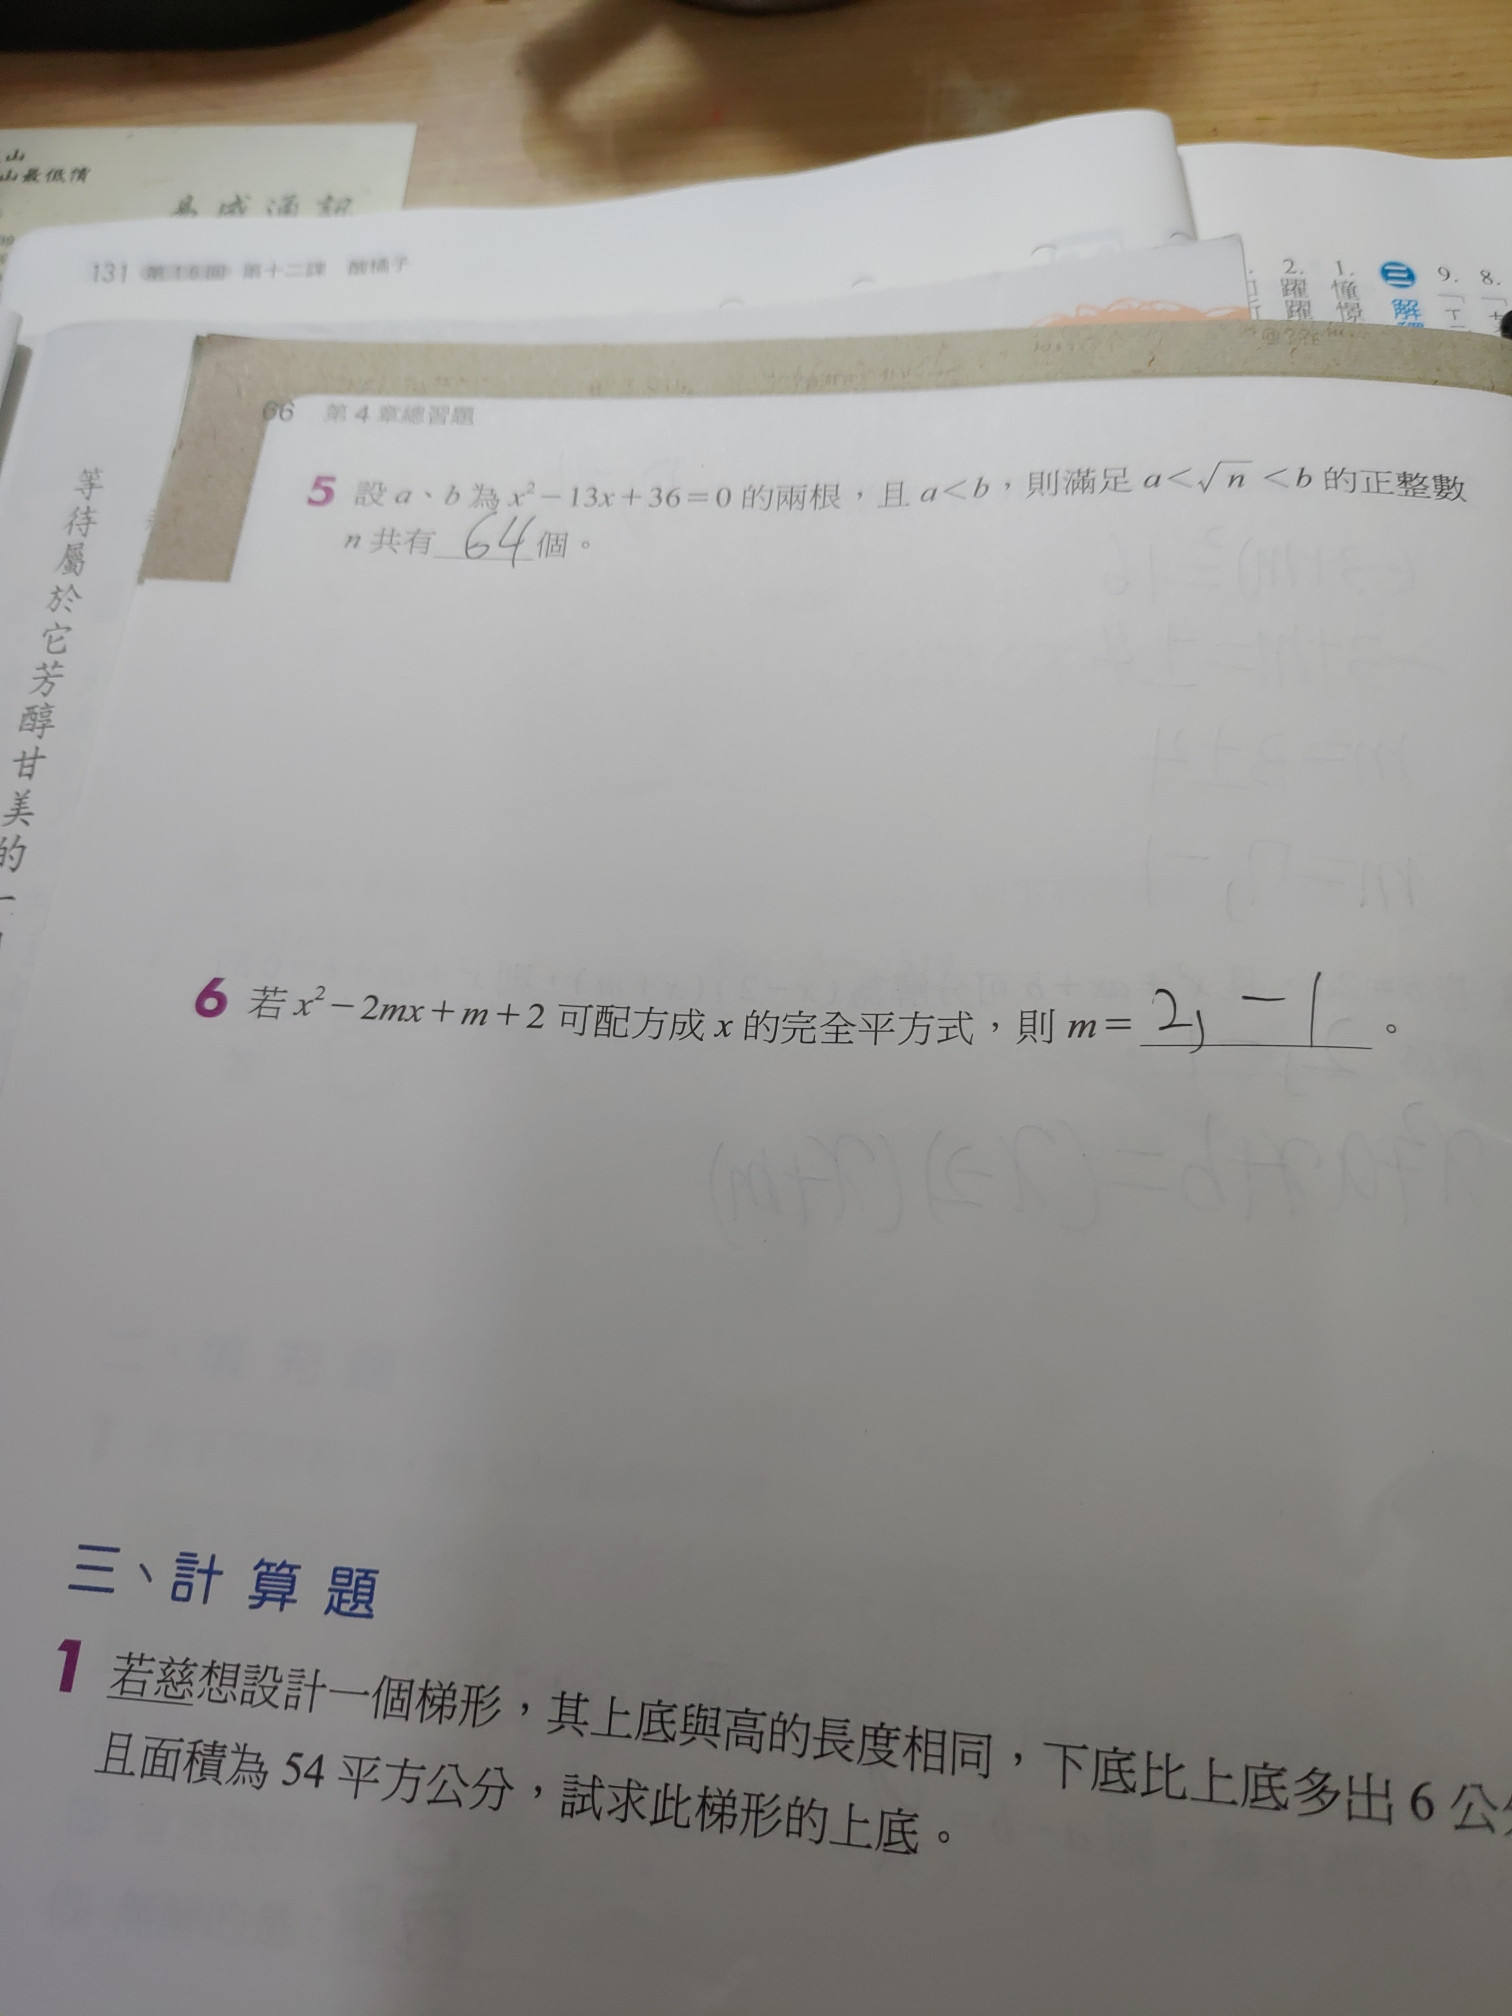 山
山最低價
易威通訊
131 第16回 第十二課 酸橘子
2. 1. 三 9. 8.
躍躍
憧憬
解
66 第4章總習題
5 設 a、b 為 x²－13x＋36＝0 的兩根，且 a＜b，則滿足 a＜√n＜b 的正整數
n 共有 64 個。
等待屬於它芳醇甘美的一
6 若 x²－2mx＋m＋2 可配方成 x 的完全平方式，則 m＝ 2, －1 。
三、計算題
1 若慈想設計一個梯形，其上底與高的長度相同，下底比上底多出 6 公
且面積為 54 平方公分，試求此梯形的上底。